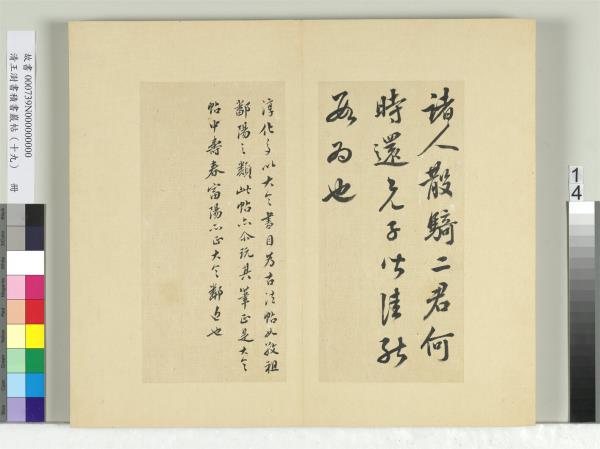 故書 000739N000000000
清王澍書積書巖帖(十九) 冊
諸人散騎二君何
時還兒子皆佳能
為也
淳化多以大令書目為古法帖如敬祖
鄱陽之類此帖亦玩其筆正是大令
帖中壽春富陽亦正大令鄰近也
14